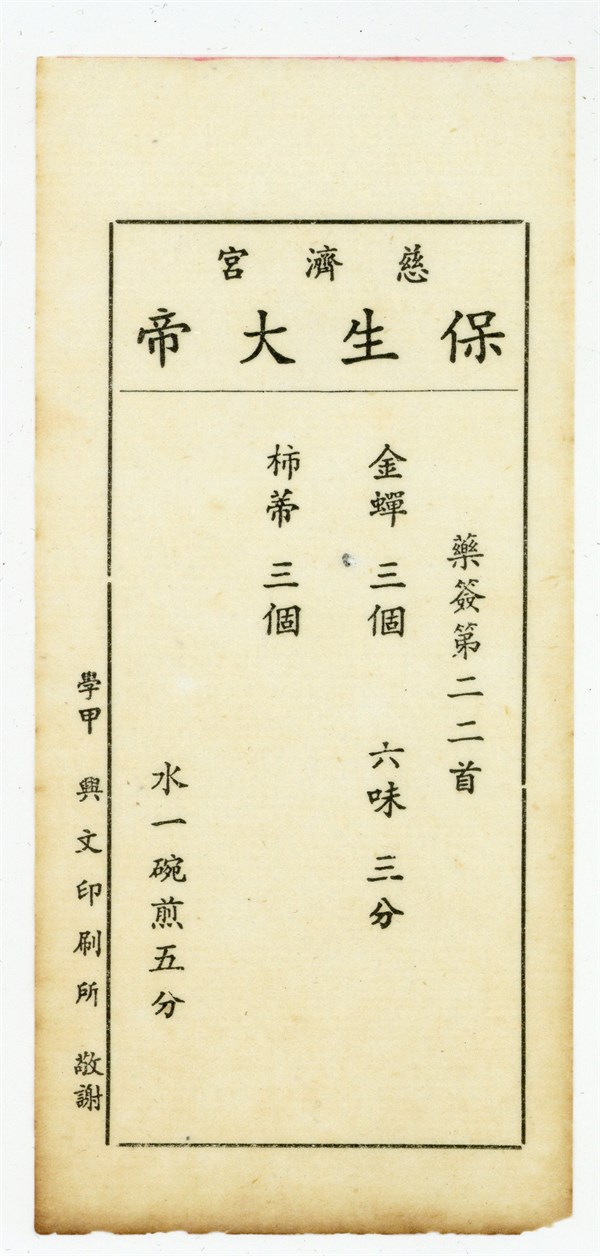 慈濟宮
保生大帝
藥簽第二二首
金蟬 三個 六味 三分
柿蒂 三個
水一碗煎五分
學甲 興文印刷所 敬謝